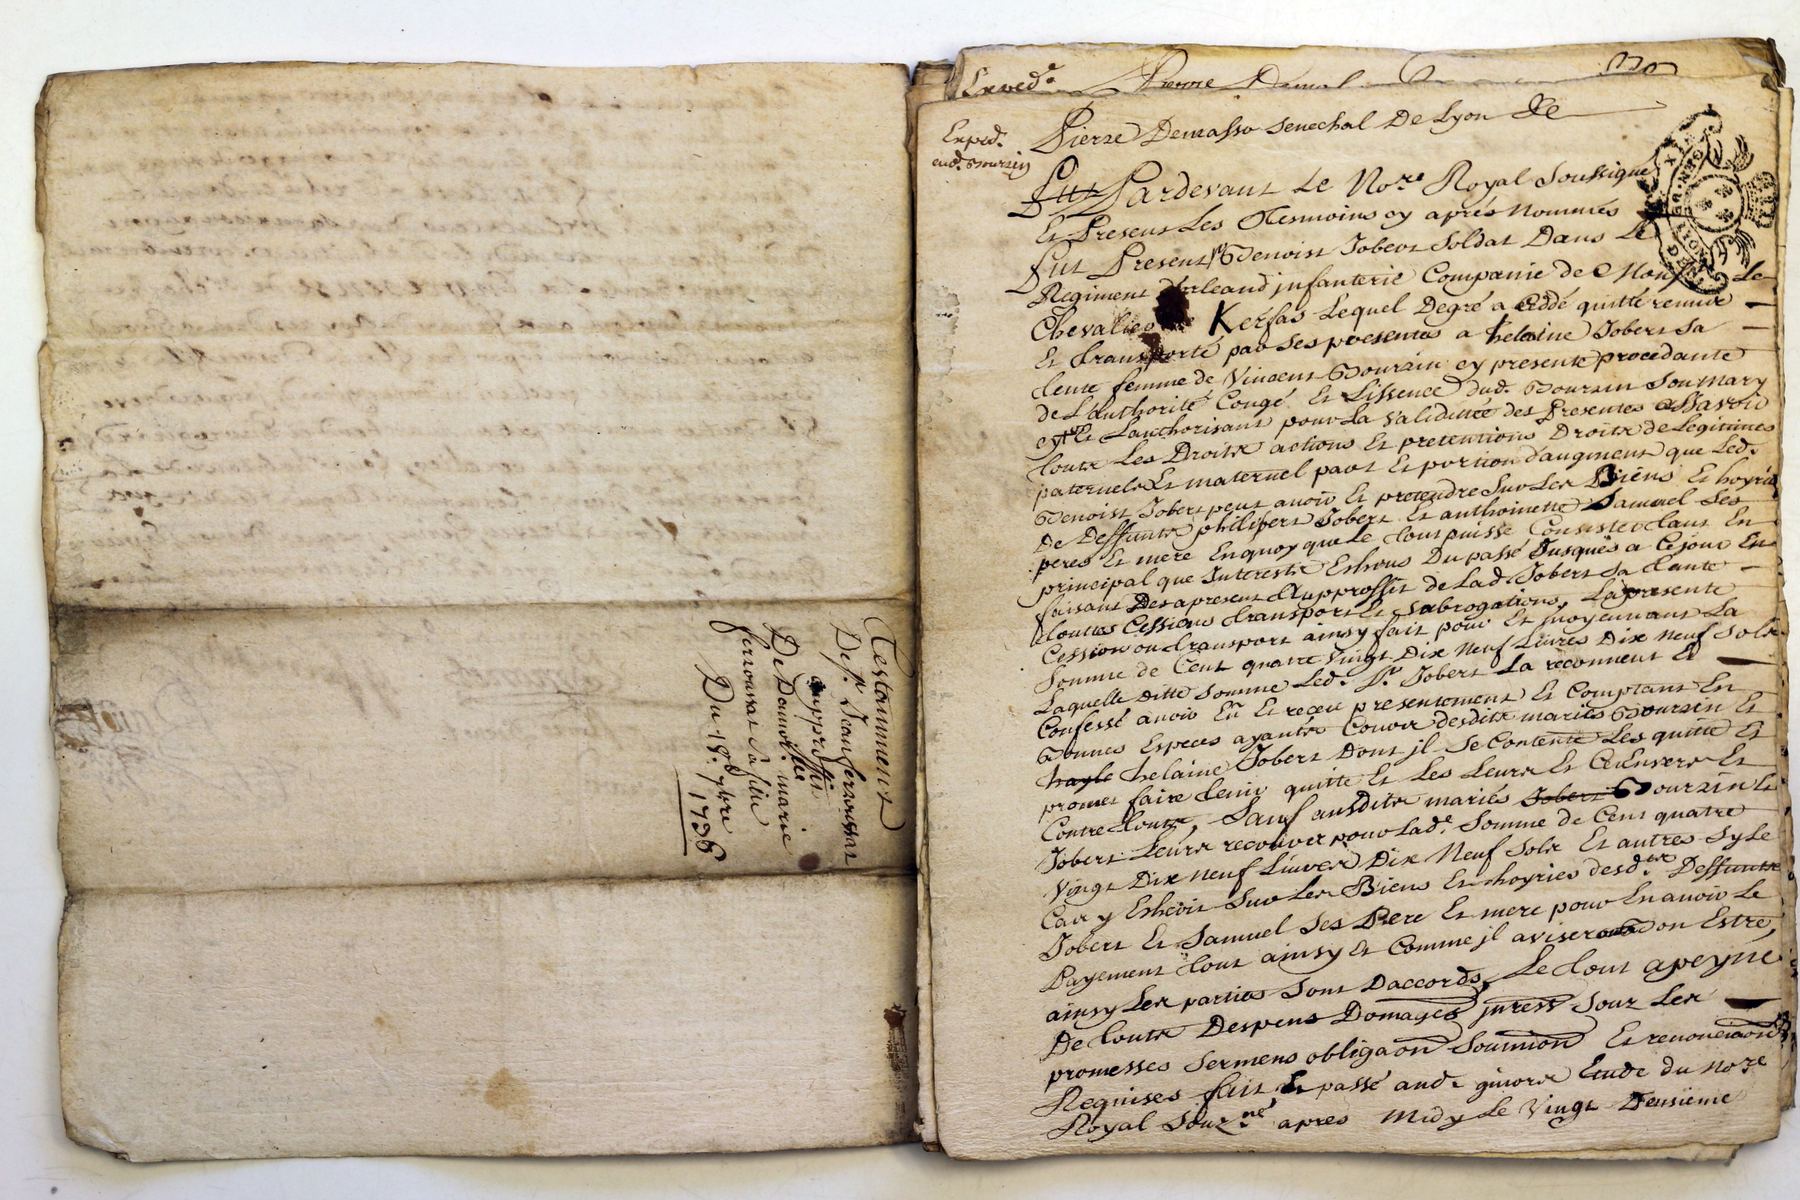 Testamment
De sr. Jean ferroussat
au proffit
De Damoi.lle marie
ferroussat sa fille
Du 18e. 7bre
1736
Exped.
Pierre
Exped.
aud. Bourzin
Pierre Demasso senechal De Lyon &c
Par devant Le No.re Royal Soussigné
Et Presens Les Tesmoins cy aprés Nommés
fut Present sr. Benoist Jobert Soldat Dans Le
Regiment infanterie Compagnie de Le
Chevalier Kersas Lequel Degré a Cedé quitté remis
Et transporté par ses presentes a helaine Jobert sa
tente femme de Vincent Bourzin cy presente procedante
de L'authorité Congé Et Lissence dud. Bourzin Son mary
Et L'authorisant pour La Validitté des Presentes assavoir
toutx Les Droitx actions Et pretentions Droitx de Legitimes
paternelx Et maternel part Et portion d'augment que Led.
Benoist Jobert peut avoir Et pretendre Sur Les Biens Et hoyries
De Deffuntx philipert Jobert Et anthoinette Samuel ses
peres Et mere En quoy que Le tout puisse Consister tant En
principal que Interestx Eshous Du passé Jusques a Ce jour En
faisant Des apresent Au proffit de Lad. Jobert sa tante
touttes Cessions transport Et Subrogations, La presente
Cession ou transport ainsy fait pour Et moyennant La
Somme de Cent quatre Vingt Dix Neuf Livres Dix Neuf Solx
Laquelle ditte Somme Led. Sr. Jobert La reconnent Et
Confessé avoir Eu Et reçeu presentement Et Comptant En
Bonnes Especes ayantx Couvr desditx mariés Bourzin Et
helaine Jobert Dont jl Se Contente Les quitte Et
promet faire tenir quitte Et Les Leurx Et Envers Et
Contre toutx, Sauf ausditx mariés Jobert Bourzin Et
Jobert Leurx recouvrer pour Lad.e Somme de Cent quatre
Vingt Dix neuf Livres Dix Neuf Solx Et autres Sy Le
Cas y Escheoit Sur Les Biens Et hoyries desd.tx Deffuntx
Jobert Et Samuel Ses Pere Et mere pour En avoir Le
Payement tout ainsy Et Comme jl avisera Bon Estre,
ainsy Les parties Sont D'accords, Le tout a peyne
De toutx Despens Domages Sour Les
promesses Sermens obligaon Soumion Et renonciaon
Requises fait Et passé aud. givors Etude du No.re
Royal Souz.né apres Midy Le Vingt Deusieme